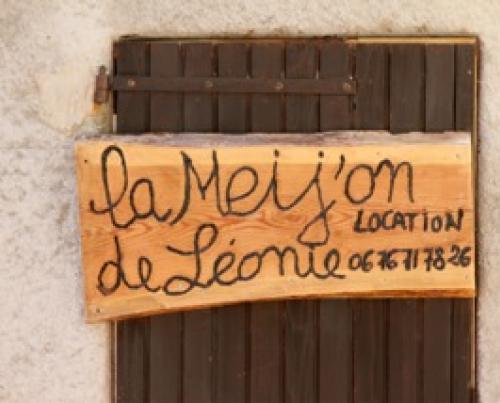 la Meij'on
LOCATION
de Léonie 0676717826